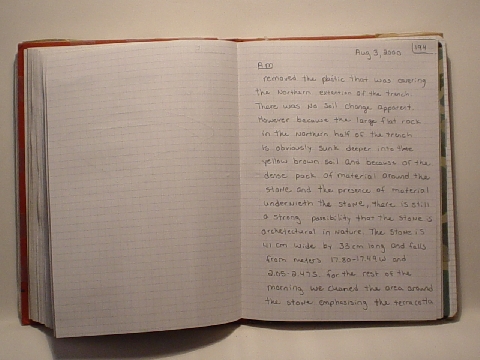 Aug 3, 2000
194
Am
removed the plastic that was covering
the Northern extention of the trench.
There was No soil change apparent.
However because the large flat rock
in the Northern half of the trench
is obviously sunk deeper into the
yellow brown soil and because of the
dense pack of material around the
stone and the presence of material
underneath the stone, there is still
a strong possibility that the stone is
architectural in Nature. The stone is
41 cm wide by 33 cm long and falls
from meters 17.80-17.49 W and
2.05-2.47 S. for the rest of the
morning we cleaned the area around
the stone emphasising the terracotta